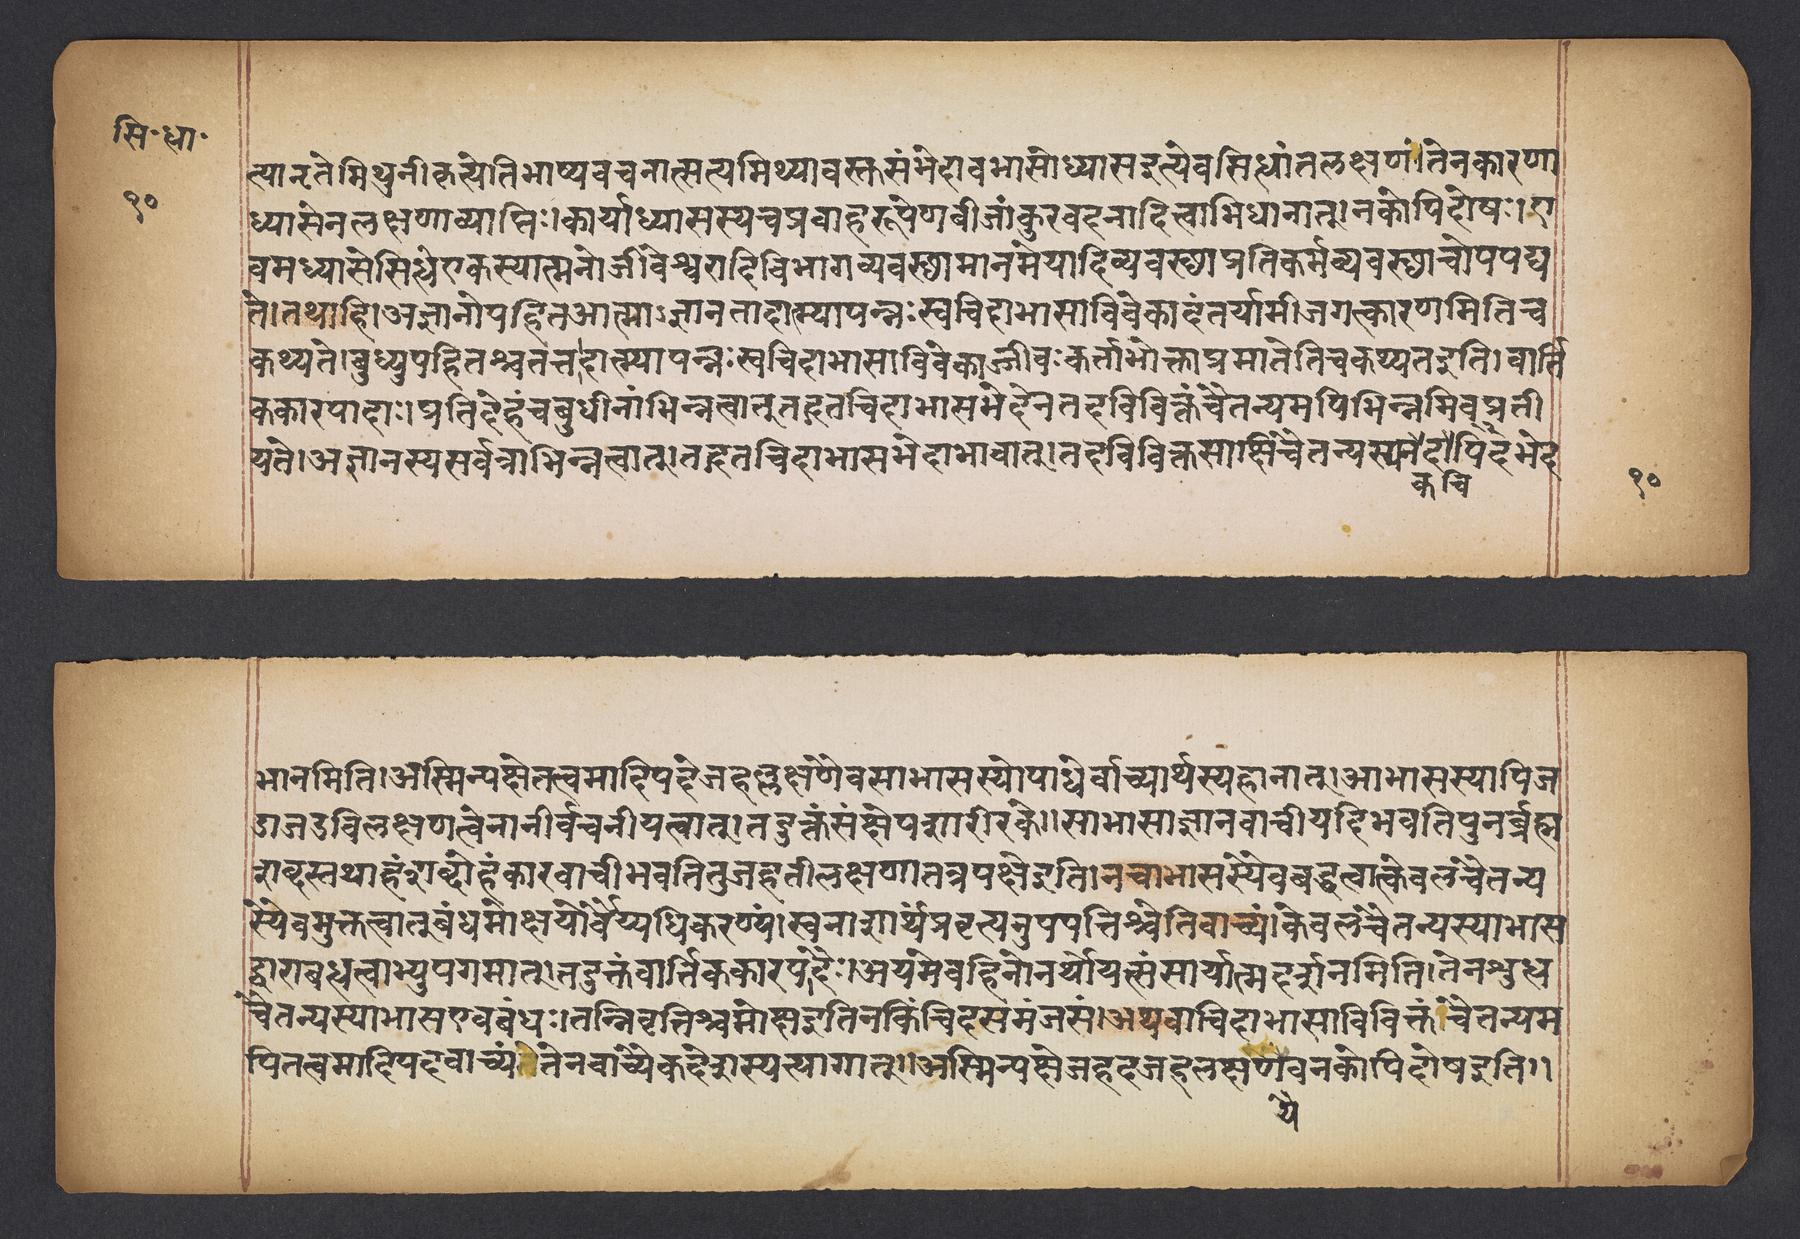 सि॰धा॰
१०
त्यानृतेमिथुनीकृत्येतिभाष्यवचनात्सत्यमिथ्यावस्तुसंभेदावभासोध्यासइत्येवसिध्धांतलक्षणं।तेनकारणा
ध्यासेनलक्षणाव्याप्तिः।कार्याध्यासस्यचप्रवाहरूपेणबीजांकुरवदनादित्वाभिधानात्।नकोपिदोषः।ए
वमध्यासेसिध्धेएकस्यात्मनोजीवेश्वरादिविभागव्यवस्छामानमेयादिव्यवस्छाप्रतिकर्मव्यवस्छाचोपपद्य
ते।तथाहि।अज्ञानोपहितआत्माऽज्ञानतादात्म्यापन्नःस्वचिदाभासाविवेकादंतर्यामीजगत्कारणमितिच
कथ्यते।बुध्युपहितश्चतत्तादात्म्यापन्नःस्वचिदाभासाविवेकाज्जीवःकर्ताभोक्ताप्रमातेतिचकथ्यतइति।वार्ति
ककारपादाः।प्रतिदेहंचबुधीनांभिन्नत्वात्तद्गतचिदाभासभेदेनतदविविक्तंचैतन्यमपिभिन्नमिवप्रती
यते।अज्ञानस्यसर्वत्राभिन्नत्वात्।तद्गतचिदाभासभेदाभावात्।तदविविक्तसाक्षिचैतन्यस्यनदापिदभेद
कचि
१०
भानमिति।अस्मिन्पक्षेतत्त्वमादिपदेजहल्लक्षणेवसाभासस्योपाधेर्वाच्यार्थस्यहानात्।आभासस्यापिज
डाजडविलक्षणत्वेनानीर्वचनीयत्वात्।तदुक्तंसंक्षेपशारीरके।।साभासाज्ञानवाचीयदिभवतिपुनर्ब्रह्म
शब्दस्तथाहंशब्दोहंकारवाचीभवतितुजहतीलक्षणातत्रपक्षेइति।नचाभासस्यैवबद्धत्वात्केवलचैतन्य
स्यैवमुक्तत्वात्बंधमोक्षयोर्वैय्यधिकरण्यं।स्वनाशार्थंप्रवृत्यनुपपत्तिश्चेतिवाच्यं।केवलचैतन्यस्याभास
द्वाराबध्धत्वाभ्युपगमात्।तदुक्तंवार्तिककारपादैः।अयमेवहिनोनर्थोयत्संसार्यात्मदर्शनमिति।तेनशुध्ध
चैतन्यस्याभासएवबंधः।तन्निवृत्तिश्चमोक्षइतिनकिंचिदसमंजसं।अथवाचिदाभासाविविक्तंचैतन्यम
पितत्वमादिपदवाच्यं।तेनवाच्यैकदेशस्यत्यागात्।।अस्मिन्पक्षेजहदजहलक्षणेवनकोपिदोषइति।।
यै